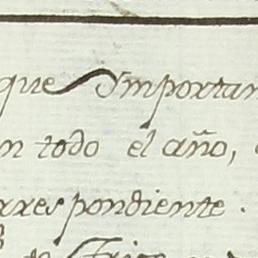 que Importan
n todo el año,
rrespondiente.